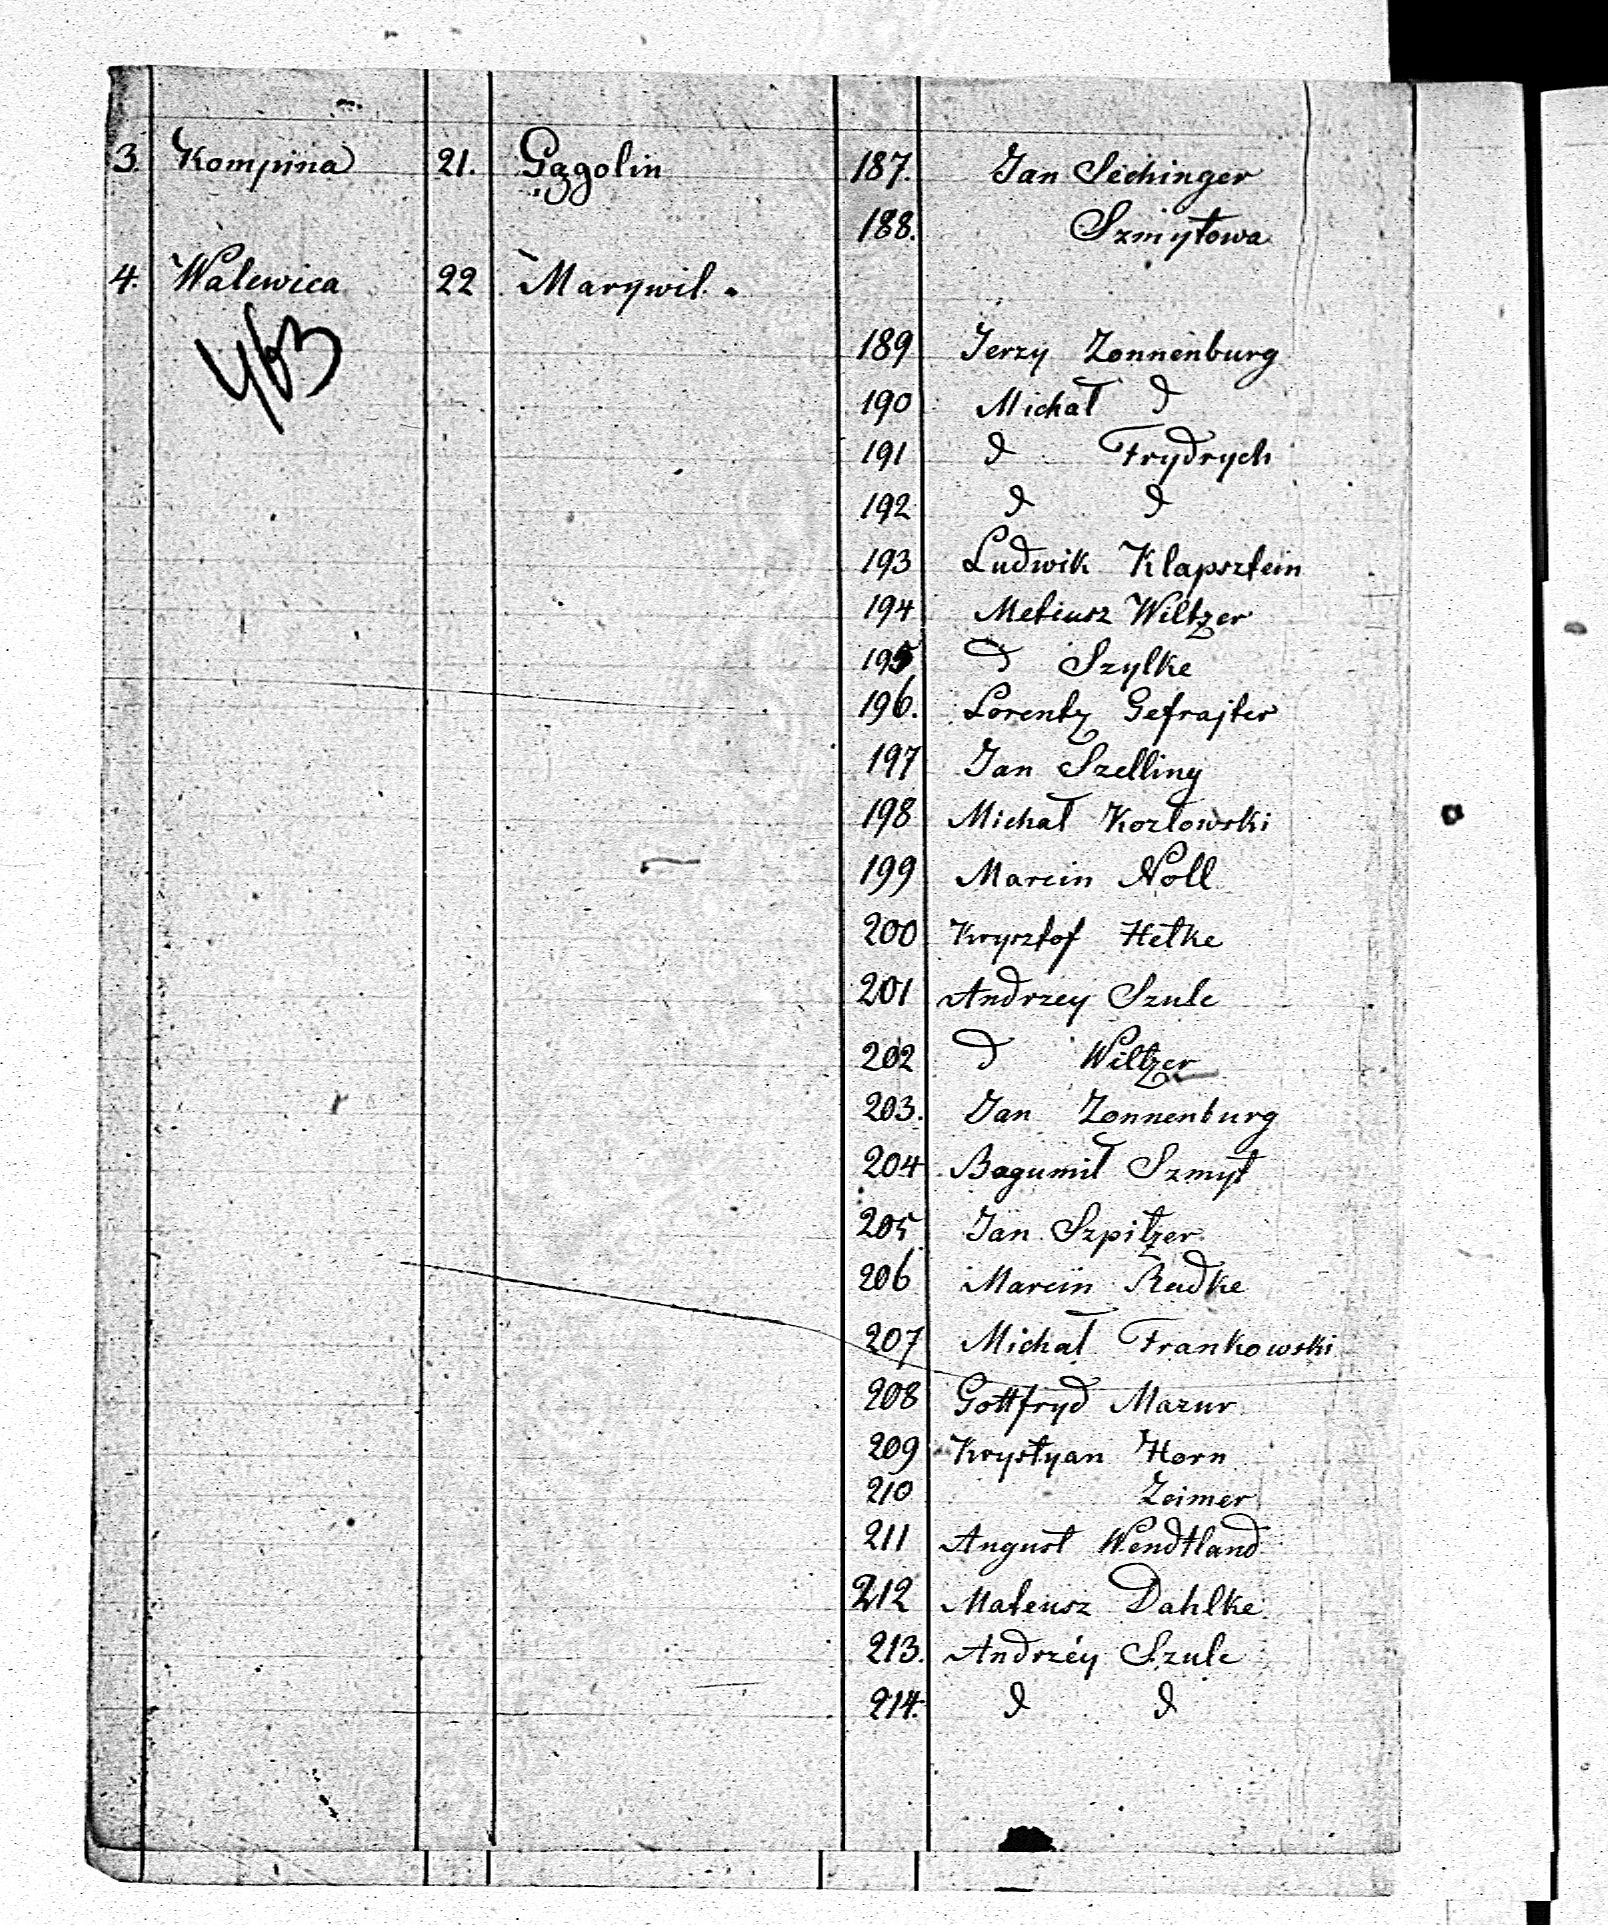 3. Kompina 21. Gągolin 187. Jan Sechinger
188. Szmytowa
4. Walewica 22 Marywil.
463
189 Jerzy Zonnenburg
190 Michał d
191 d Frydrych
192 d d
193 Ludwik Klapsztein
194 Meteusz Wiltzer
195 d Szylke
196. Lorentz Gefrajter
197 Jan Szelling
198 Michał Kozłowski
199 Marcin Noll
200 Krysztof Hetke
201 Andrzey Szulc
202 d Wiltzer
203. Jan Zonnenburg
204 Bogumił Szmyt
205 Jan Szpitzer
206 Marcin Radke
207 Michał Frankowski
208 Gottfryd Mazur
209 Krystyan Horn
210 Zeimer
211 August Wendtland
212 Mateusz Dahlke
213. Andrzéy Szulc
214. d d